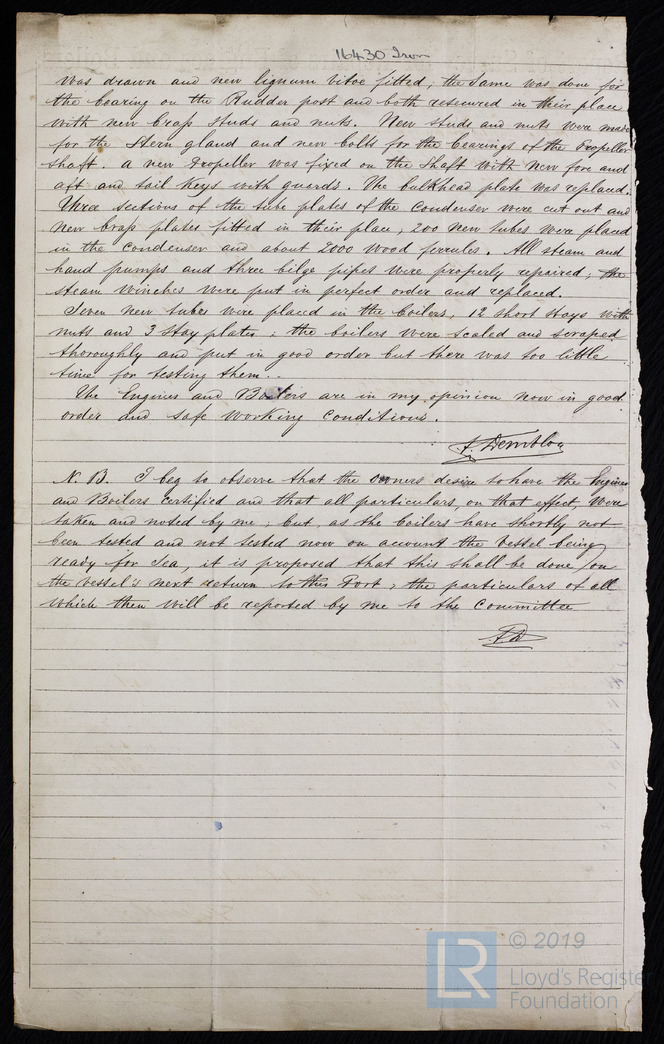 16430 Iron
was drawn and new lignum vitoe fitted, the same was done for
the bearing on the Rudder post and both resecured in their place
with new brass studs and nuts. New studs and nuts were made
for the Stern gland and new bolts for the bearings of the Propeller
shaft. A new Propeller was fixed on the Shaft with new fore and
aft and tail Keys with guards. The bulkhead plate was replaced.
Three sections of the tube plates of the Condenser were cut out and
new brass plates fitted in their place, 200 new tubes were placed
in the Condenser and about 2000 wood ferrules. All steam and
hand pumps and three bilge pipes were properly repaired, the
steam winches were put in perfect order and replaced.
Seven new tubes were placed in the boilers, 12 short stays with
nuts and 3 Stay plates; the boilers were scaled and scraped
thoroughly and put in good order but there was too little
time for testing them.
The Engines and Boilers are in my opinion now in good
order and safe working conditions.
N. B. I beg to observe that the owners desire to have the Engines
and Boilers certified and that all particulars, on that effect, were
taken and noted by me, but, as the boilers have shortly not
been tested and not tested now on account the vessel being
ready for Sea, it is proposed that this shall be done on
the vessel's next return to this Port, the particulars of all
which then will be reported by me to the Committee
© 2019
LR
Lloyd's Register
Foundation